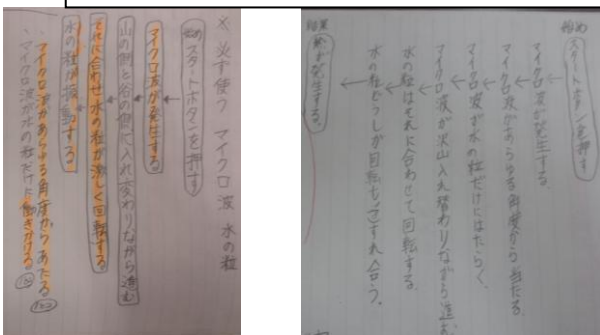 ※ 火を使う マイクロ波 水の粒
始め スタートボタンを押す
マイクロ波が発生する。
山の側と谷の側で入れ変わりながら進む
それに合わせ水の粒が激しく回転する。
水の粒が振動する
・マイクロ波があらゆる角度からあたる
・マイクロ波が水の粒だけに働きかける
始め
スタートボタンを押す
マイクロ波が発生する。
マイクロ波があらゆる角度から当たる。
マイクロ波が水の粒だけにはたらく。
マイクロ波が沢山入れ替わりながら進む
水の粒はそれに合わせて回転する。
水の粒どうしが回転もこすれ合う。
結果
熱が発生する。